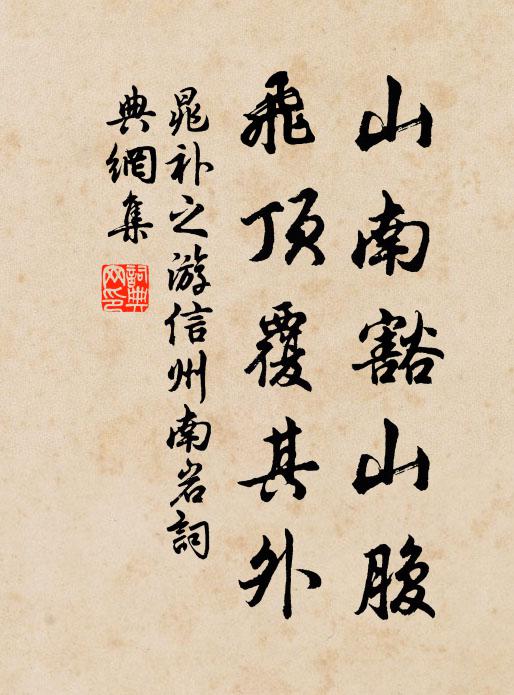 山南豁山腹
飛頂覆其外
晁补之游信州南岩詞
典網集
詞典
网印